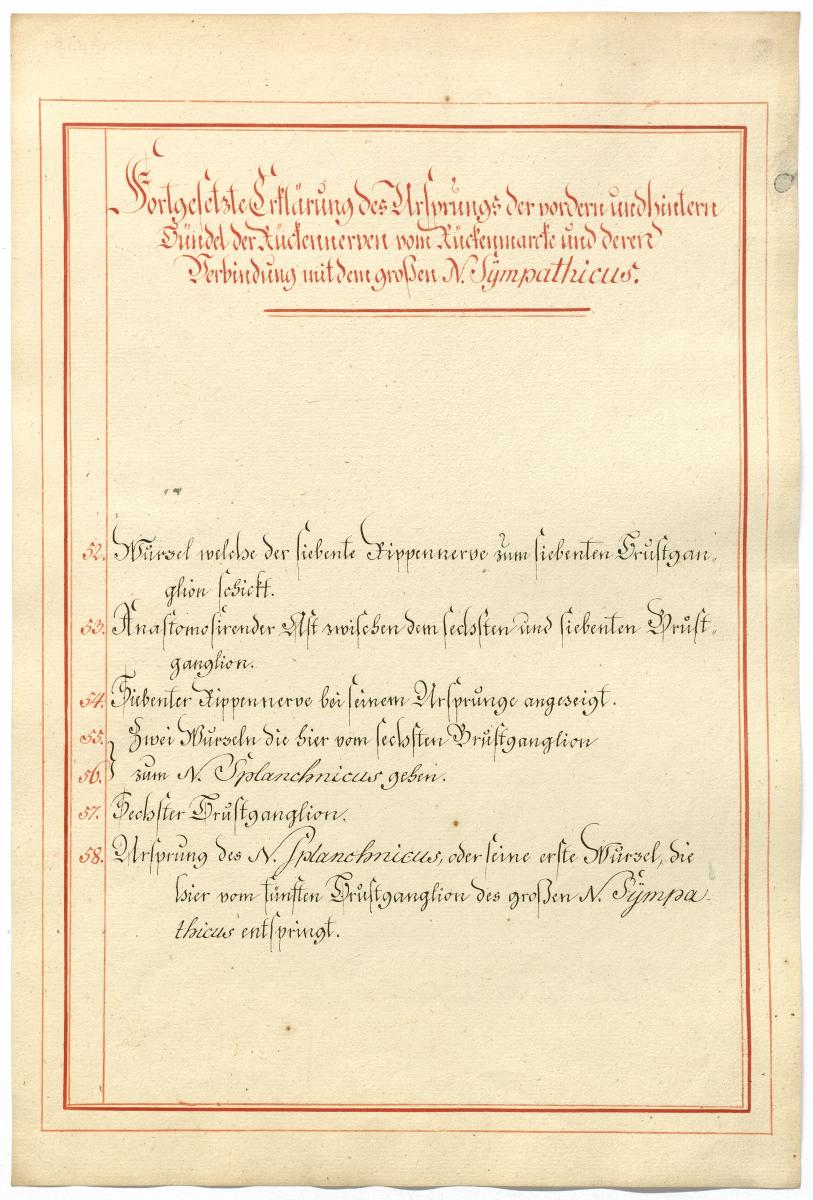 Fortgesetzte Erklärung des Ursprungs der vordern und hintern
Bündel der Rückennerven vom Rückenmarcke und deren
Verbindung mit dem großen N. Sÿmpathicus.
52. Wurzel welche der siebente Rippennerve zum siebenten Brustgan-
glion schickt.
53. Anastomosirender Ast zwischen dem sechsten und siebenten Brust-
ganglion.
54. Siebenter Rippennerve bei seinem Ursprunge angezeigt.
55. Zwei Wurzeln die hier vom sechsten Brustganglion
56. zum N. Splanchnicus gehen.
57. Sechster Brustganglion.
58. Ursprung des N. Splanchnicus, oder seine erste Wurzel, die
hier vom fünften Brustganglion des großen N. Sÿmpa-
thicus entspringt.